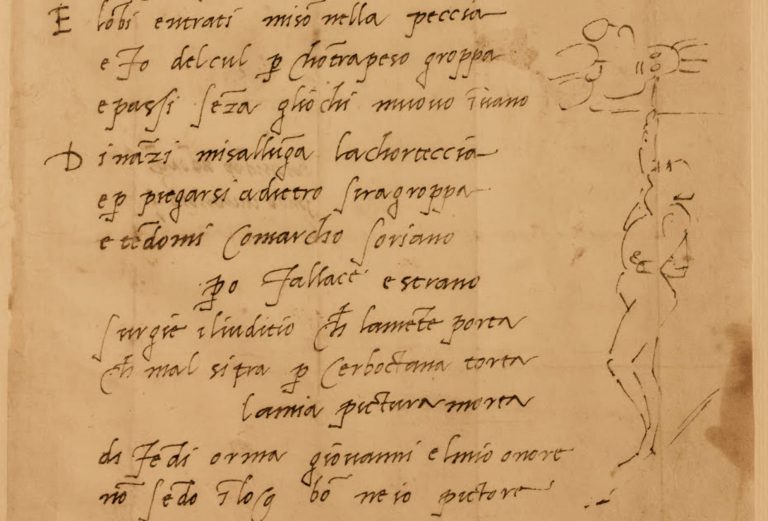 E lobi entrati miso nella peccia
e fo del cul p chõtrapeso groppa
e passi seza gliochi muovo ĩvano
Dinãzi misallũga lachorteccia
e p piegarsi adietro siragroppa
e tẽdomi Comarcho soriano
po fallace e strano
surgie iliuditio ch lamẽte porta
ch mal si tra p cerboctana torta
lamia pictura morta
difedi orma giovanni elmio onore
nõ sẽdo ĩ loco bõ ne io pictore